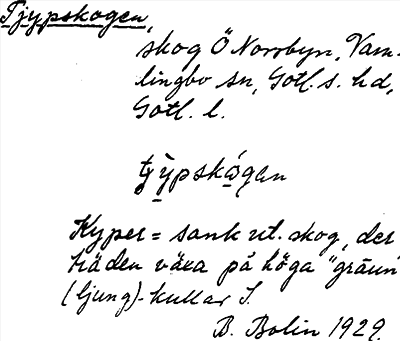 Tjypskogen,
skog Ö Norrbyn, Vam-
lingbo sn, Gotl. s. hd,
Gotl. l.
tjy̆pskågen
Kyper = sank ut. skog, der
träden växa på höga "gräun"
(ljung)-kullar S.
B. Bolin 1929.